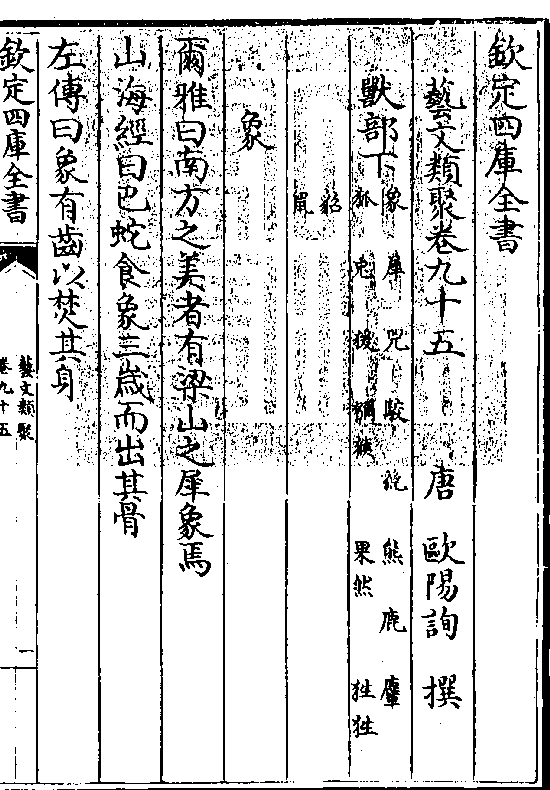 欽定四庫全書
藝文類聚卷九十五
唐 歐陽詢 撰
獸部下
象 犀 兕 駮 貔 熊 鹿 麞
狐 兔 猨 獼猴 果然 狌狌
貂
鼠
象
爾雅曰南方之美者有梁山之犀象焉
山海經曰巴蛇食象三歲而出其骨
左傳曰象有齒以焚其身
欽定四庫全書
藝文類聚
卷九十五
一